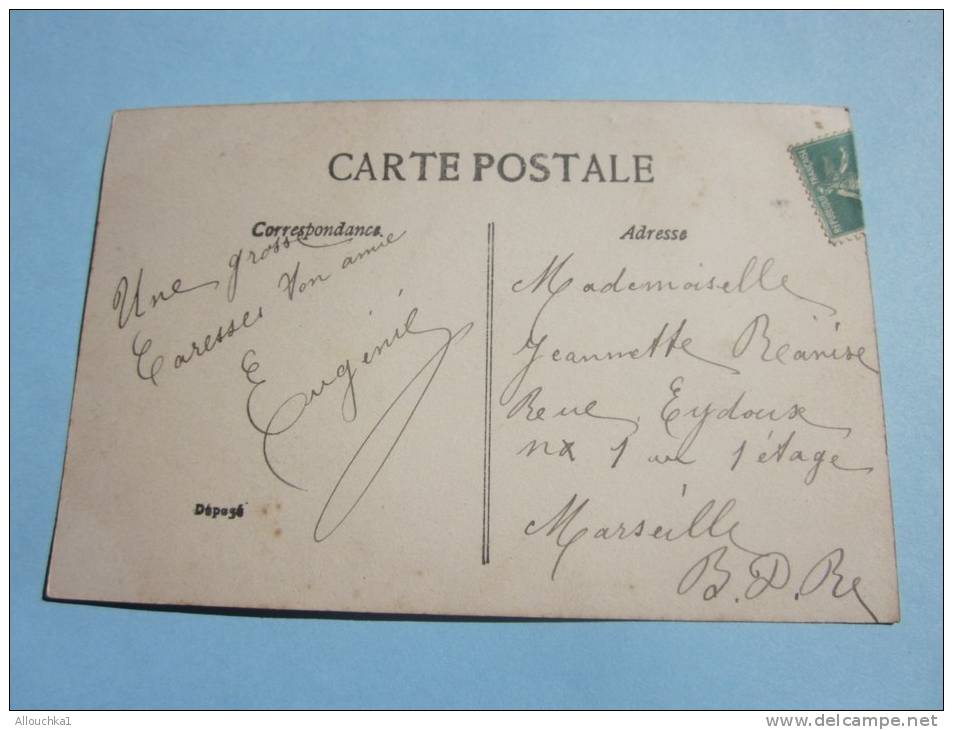 CARTE POSTALE
Correspondance
Une grosse
Caresses Ton amie
Eugénie
Déposé
Adresse
Mademoiselle
Jeannette
Rue Eydoux
1 au 1 étage
Marseille
B.D.Re
Allouchka1
www.delcampe.net